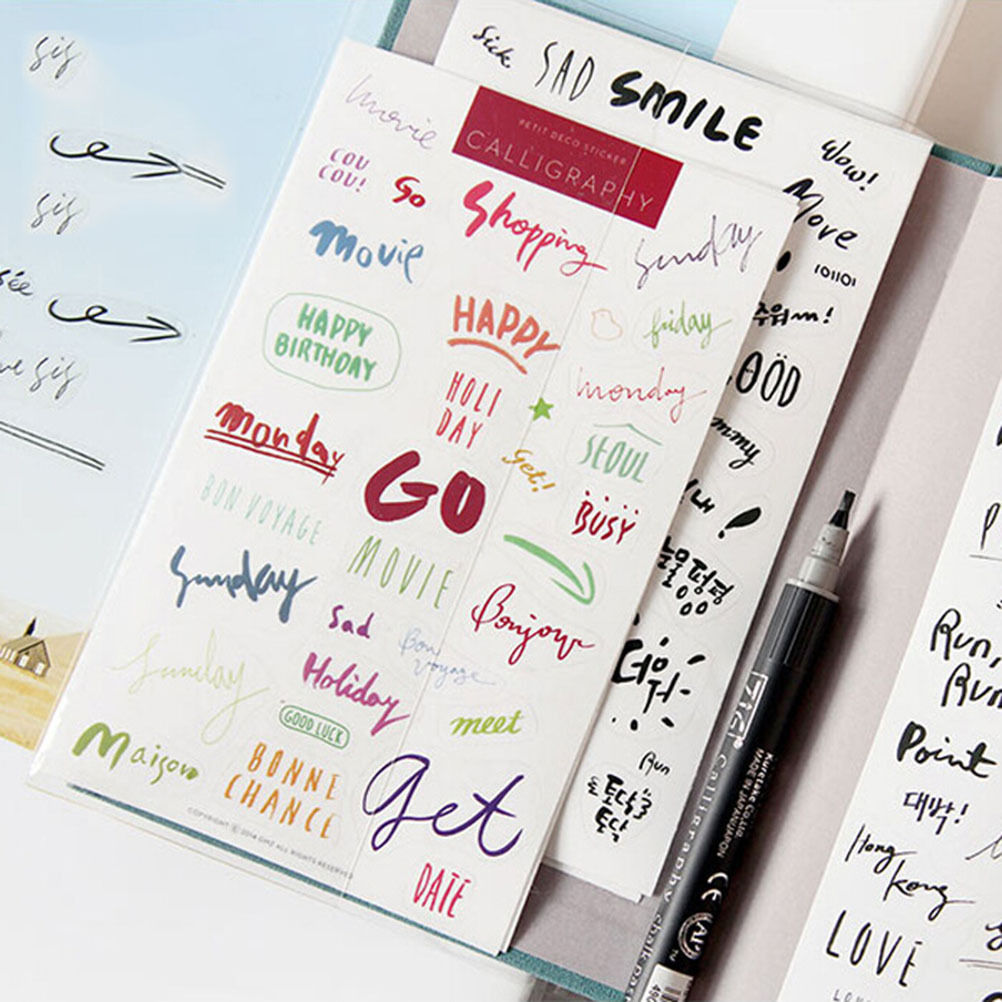 sis
sis
sis
movie
PETIT DECO STICKER
CALLIGRAPHY
COU
COU!
Go
Shopping
Sunday
Movie
HAPPY
BIRTHDAY
HAPPY
friday
HOLI
DAY
monday
Monday
SEOUL
get!
GO
BUSY
BON VOYAGE
MOVIE
Sunday
Sad
Bonjour
Bon
voyage
Sunday
Holiday
GOOD LUCK
meet
Maison
BONNE
CHANCE
Get
DATE
COPYRIGHT © 2014 GMZ ALL RIGHTS RESERVED
Sick.
SAD
SMILE
Wow!
Move
101101
추워~!
눈물펑펑
더워
Run
토닥토닥
ZIG
Kuretake Co., Ltd.
MADE IN JAPAN/JAPON
Calligraphy
CE
Run,
Run
Point
대박!
Hong
Kong
LOVE